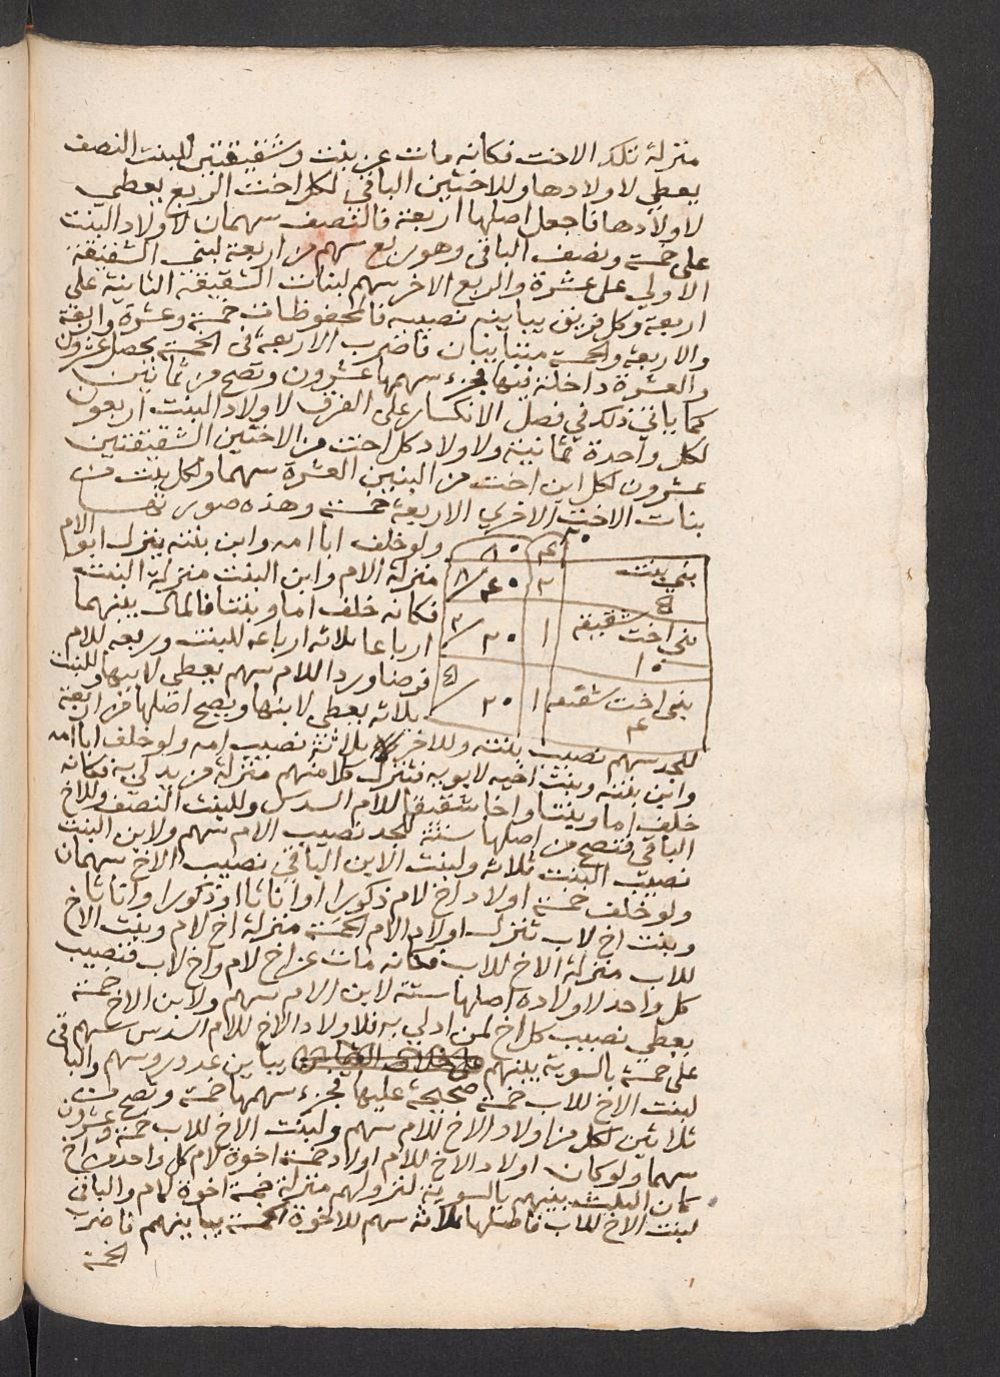 منزلة تلك الاخت فكانه مات عن بنت وشقيقتين للبنت النصف
يعطي لاولادها وللاختين الباقي لكل اخت الربع يعطي
لاولادها فاجعل اصلها اربعة فالنصف سهمان لاولاد البنت
على خمسة ونصف الباقي وهو ربع سهم من اربعة لبني الشقيقة
الاولي على عشرة والربع الاخر سهم لبنات الشقيقة الثانية على
اربعة وكل فريق يباينه نصيبه فالمحفوظات خمسة وعشرة واربعة
والاربعة والخمسة متباينان فاضرب الاربعة في الخمسة يحصل عشرون
والعشرة داخلة فيها فجزء سهمها عشرون وتصح من ثمانين
كما ياتي ذلك في فصل الانكسار على الفرق لاولاد البنت اربعون
لكل واحدة ثمانية ولاولاد كل اخت من الاختين الشقيقتين
عشرون لكل ابن اخت من البنين العشرة سهما ولكل بنت من
بنات الاخت الاخري الاربعة خمسة وهذه صورتها
ولو خلف ابا امه وابن بنته ينزل ابو الام
منزلة الام وابن البنت منزلة البنت
فكانه خلف اما وبنتا فالمال بينهما
ارباعا ثلاثة ارباعه للبنت وربعه للام
فرضا وردا للام سهم يعطي لابيها وللبنت
ثلاثة يعطي لابنها ويصح اصلها من اربعة
٢٠
٤ ٨٠
بني بنت ٥ ٢ ٤٠ ٨
بني اخت شقيقه ١٠ ١ ٢٠ ٢
بني اخت شقيقه ٤ ١ ٢٠ ٥
للجد سهم نصيب بنته وللاخر ثلاثة نصيب امه ولو خلف ابا امه
وابن بنته وبنت اخيه لابويه فتنزل كلا منهم منزلة من يدلي به فكانه
خلف اما وبنتا واخا شقيقا للام السدس وللبنت النصف وللاخ
الباقي فتصح من اصلها ستة للجد نصيب الام سهم ولابن البنت
نصيب البنت ثلاثة ولبنت الابن الباقي نصيب الاخ سهمان
ولو خلف خمسة اولاد اخ لام ذكورا او اناثا او ذكورا واناثا
وبنت اخ لاب تنزل اولاد الام الخمسة منزلة اخ لام وبنت الاخ
للاب منزلة الاخ للاب فكانه مات عن اخ لام واخ لاب فنصيب
كل واحد لاولاده اصلها ستة لابن الام سهم ولابن الاخ خمسة
يعطي نصيب كل اخ لمن ادلي به فلاولاد الاخ للام السدس سهم في
على خمسة بالسوية بينهم يباين عدد رؤسهم والباقي
لبنت الاخ للاب خمسة صحيحة عليها فجزء سهمها خمسة وتصح من
ثلاثين لكل من اولاد الاخ للام سهم ولبنت الاخ للاب خمسة وعشرون
سهما ولو كان اولاد الاخ للام اولاد خمسة اخوة لام كل واحد من اخ
كان الثلث بينهم بالسوية لنزولهم منزلة خمسة اخوة لام والباقي
لبنت الاخ للاب فاصلها ثلاثة سهم للاخوة الخمسة يباينهم فاضرب
الخمسة